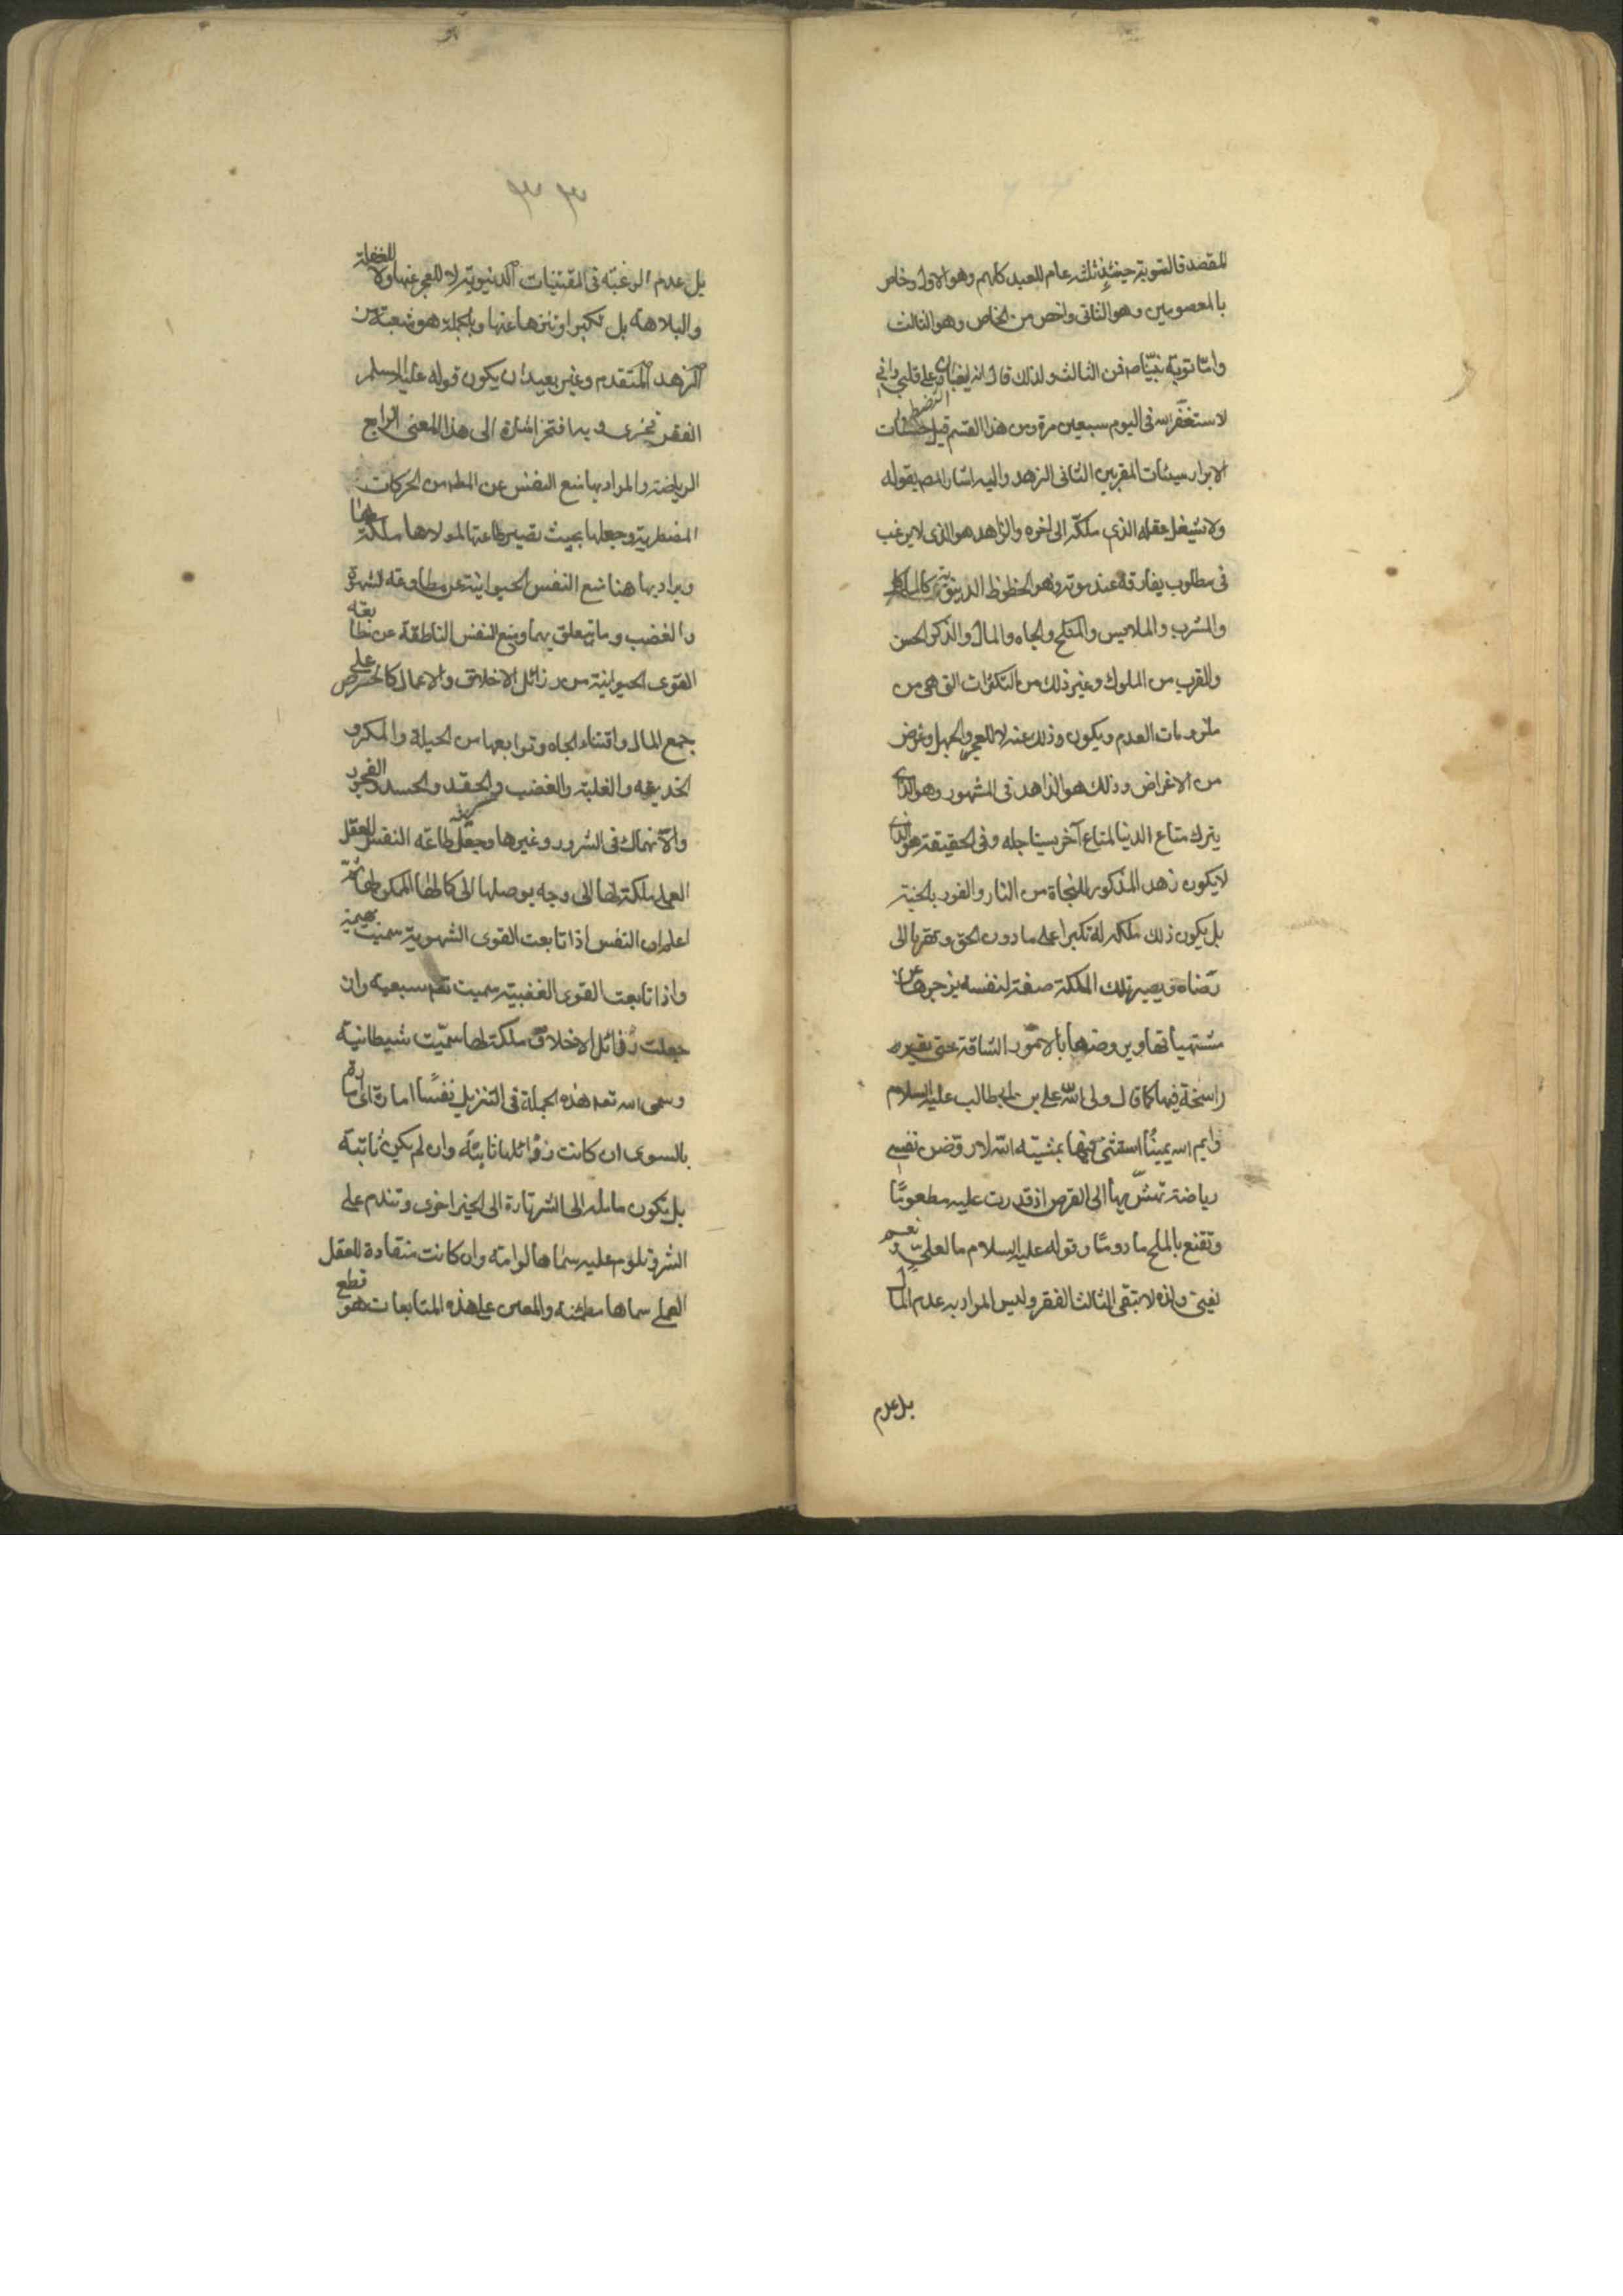 المقصد فالتوبة حينئذ ثلثه عام للعبيد كلهم وهو الاول وخاص
بالمعصومين وهو الثاني واخص من الخاص وهو الثالث
واما توبة نبينا صم فمن الثالث ولذلك قال انه ليغان على قلبي واني
لاستغفر الله في اليوم سبعين مرة ومن هذا القسم قيل حسنات
الابرار سيئات المقربين الثاني الزهد واليه اشار المصم بقوله
ولا تشغل عقله الذي ملكته الى اخره والزاهد هو الذي لا يرغب
في مطلوب يفارقه عند موته وهو الحظوظ الدنيوية كالماكل
والمشرب والملابس والمنكح والجاه والمال والذكر الحسن
والقرب من الملوك وغير ذلك من التكثرات التي هي من
ملزومات العدم ويكون وذلك عنه لا للعجز والجهل وغرض
من الاغراض وذلك هو الزاهد في المشهور وهو الذي
يترك متاع الدنيا لمتاع آخر سيناجله وفي الحقيقة هو الذي
لا يكون زهد المذكور للنجاة من النار والفوز بالجنة
بل يكون ذلك ملكة له تكبرا على ما دون الحق وتقربا الى
رضاه ويصير تلك الملكة صفة لنفسه يزجرها عن
مشتهياتها ويروضها بالامور الشاقة حتى تصير
راسخة فيها كما قال ولي الله علي بن ابي طالب عليه السلام
وايم الله يمينًا استثنى فيها بمشيته الله لاروضن نفسي
رياضة تهش بها الى القرص اذ قدرت عليه مطعومًا
وتقنع بالملح مادومًا وقوله عليه السلام ما لعلي ونعيم
يفنى ولذه لا تبقى الثالث الفقر وليس المراد به عدم المال
بل عدم
بل عدم الرغبة في المقتنيات الدنيوية لا للعجز عنها ولا للغفلة
والبلاهة بل تكبرا وتنزها عنها وبالجملة هو شعبة من
الزهد المتقدم وغير بعيد ان يكون قوله عليه السلام
الفقر فخرى وبه افتخر اشارة الى هذا المعنى الرابع
الرياضة والمراد بها منع النفس عن المطم من الحركات
المضطربة وجعلها بحيث تصير طاعتها لمولاها ملكة لها
ويراد بها هنا منع النفس الحيوانية عن مطاوعة الشهوة
والغضب وما يتعلق بهما ومنع النفس الناطقة عن متابعة
القوى الحيوانية من رذائل الاخلاق والاعمال كالحرص على
جمع المال واقتناء الجاه وتوابعها من الحيلة والمكر و
الخديعة والغلبة والغضب والحقد والحسد والفجور
والانهماك في الشرور وغيرها وجعل طاعة النفس للعقل
العملي ملكة لها الى وجه يوصلها الى كمالها الممكن لها ثم
اعلم ان النفس اذا تابعت القوى الشهوية سميت بهيمية
واذا تابعت القوى الغضبية سميت سبعية وان
جعلت رذائل الاخلاق ملكة لها سميت شيطانية
وسمى الله تعه هذه الجملة في التنزيل نفسًا امارة اى امارة
بالسوى ان كانت رذائلها ثابتة وان لم يكن ثابتة
بل يكون مايلة الى الشر تارة الى الخير اخرى وتندم على
الشر وتلوم عليه سماها لوامة وان كانت منقادة للعقل
العملي سماها مطمئنه والمعين على هذه المتابعات هو قطع